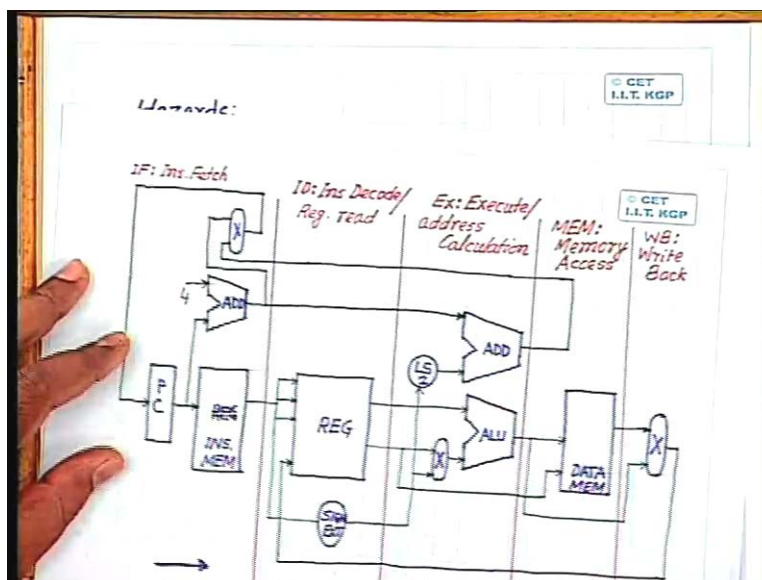 © CET
I.I.T. KGP
Hazards:
IF: Ins. Fetch
ID: Ins Decode/
Reg. read
Ex: Execute/
address
Calculation
MEM:
Memory
Access
© CET
I.I.T. KGP
WB:
Write
Back
X
4
ADD
ADD
LS
2
P
C
INS.
MEM
REG
X
ALU
DATA
MEM
X
SIGN
EXT